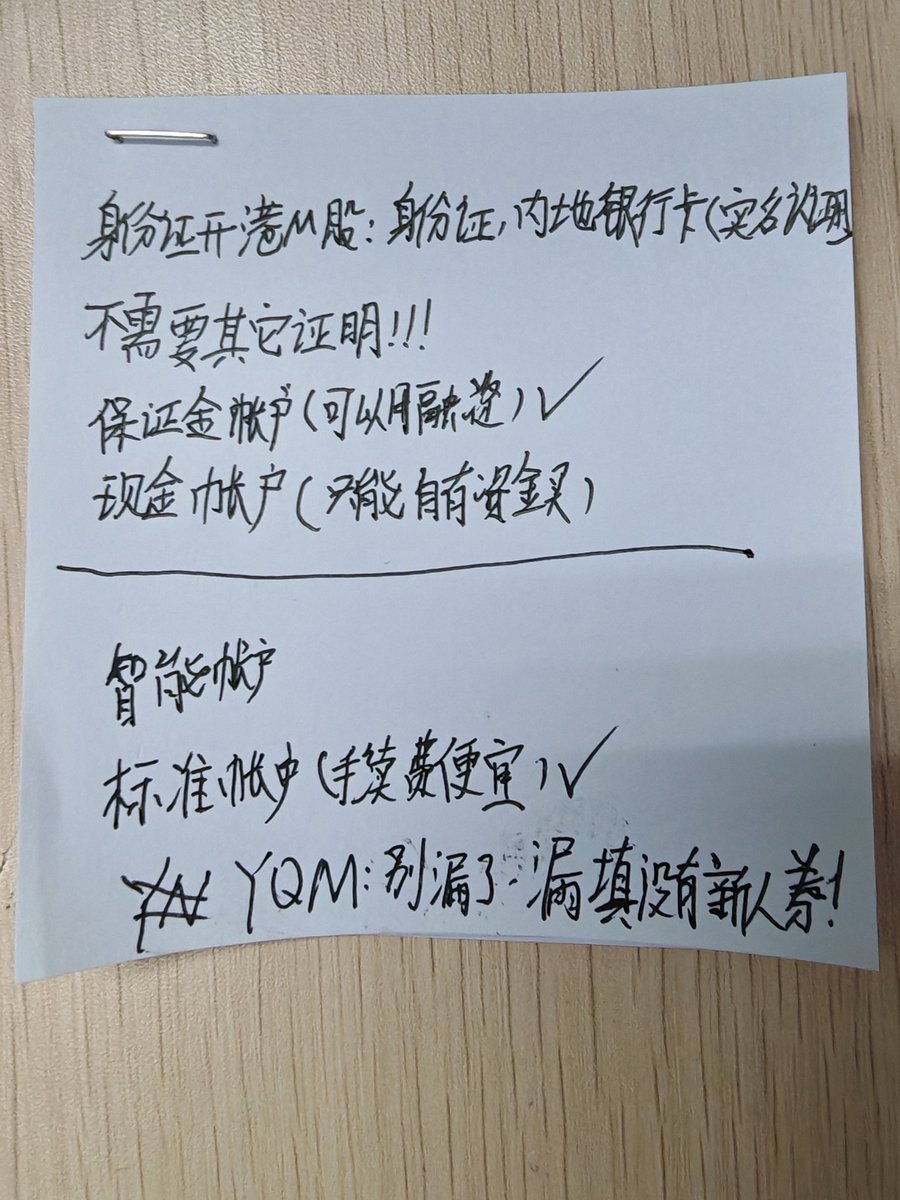 身份证开港M股：身份证，内地银行卡(实名认证)
不需要其它证明!!!
保证金帐户(可以用融资)✓
现金帐户(只能自有资金买)
智能帐户
标准帐户(手续费便宜)✓
YQM：别漏了.漏填没有新人券!